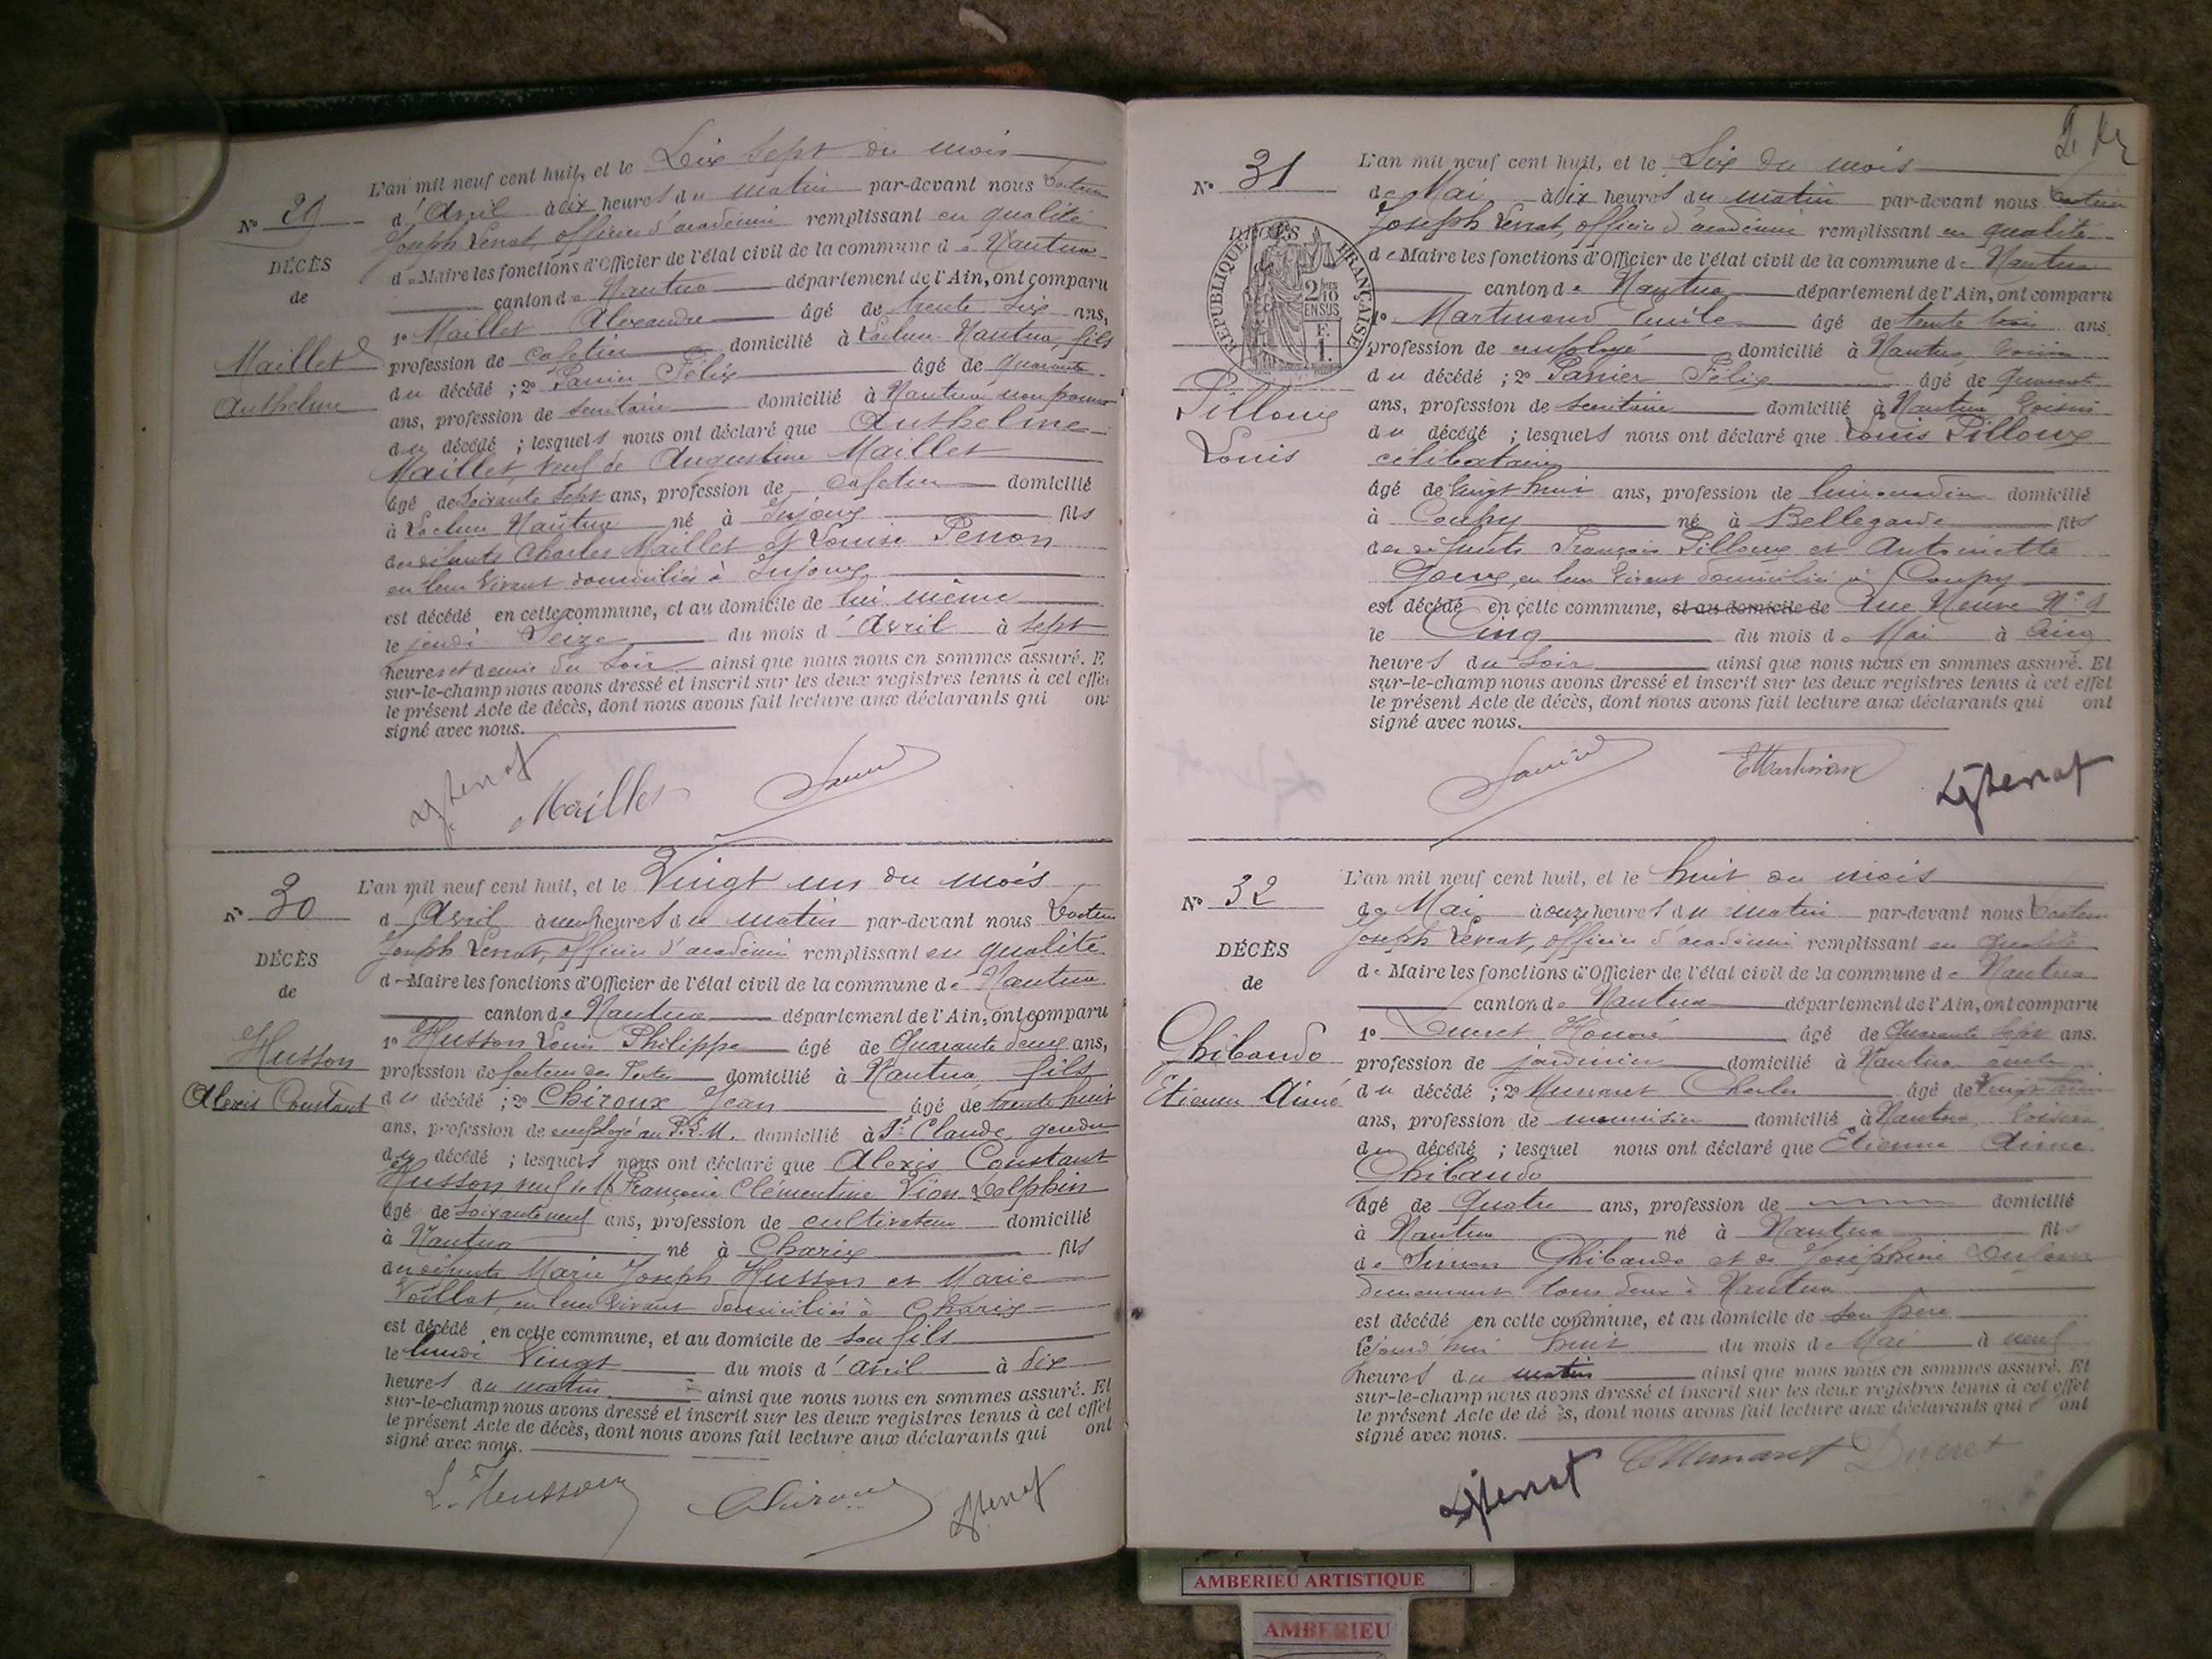 N° 29
DÉCÈS
de
Maillet
Anthelme
L'an mil neuf cent huit, et le Dix Sept du mois
d'Avril à dix heures du matin par-devant nous Docteur
Joseph officier d'académie remplissant en qualité
de Maire les fonctions d'Officier de l'état civil de la commune de Nantua
canton de Nantua département de l'Ain, ont comparu
1° Maillet Alexandre âgé de trente six ans,
profession de cafetier domicilié à Nantua, fils
du décédé ; 2° Panier Félix âgé de quarante
ans, profession de secrétaire domicilié à Nantua non parent
du décédé ; lesquels nous ont déclaré que Anthelme
Maillet, veuf de Augustine Maillet
âgé de soixante sept ans, profession de cafetier domicilié
à Nantua né à Injoux fils
des défunts Charles Maillet et Louise Perron
en leur vivant domiciliés à Injoux
est décédé en cette commune, et au domicile de lui même
le jeudi Seize du mois d'Avril à sept
heures et demie du soir ainsi que nous nous en sommes assuré. E
sur-le-champ nous avons dressé et inscrit sur les deux registres tenus à cet effe
le présent Acte de décès, dont nous avons fait lecture aux déclarants qui on
signé avec nous.
Maillet
N° 30
DÉCÈS
de
Husson
Alexis Constant
L'an mil neuf cent huit, et le Vingt un du mois
d'Avril à neuf heures du matin par-devant nous Docteur
Joseph officier d'académie remplissant en qualité
de Maire les fonctions d'Officier de l'état civil de la commune de Nantua
canton de Nantua département de l'Ain, ont comparu
1° Husson Louis Philippe âgé de Quarante deux ans,
profession de facteur des Postes domicilié à Nantua, fils
du décédé ; 2° Chiroux Jean âgé de trente huit
ans, profession de employé au P.L.M. domicilié à St Claude, gendre
du décédé ; lesquels nous ont déclaré que Alexis Constant
Husson veuf de M Françoise Clémentine Vion Delphin
âgé de soixante neuf ans, profession de cultivateur domicilié
à Nantua né à Charix fils
des défunts Marie Joseph Husson et Marie
Voillat, en leur vivant domiciliés à Charix
est décédé en cette commune, et au domicile de son fils
le lundi Vingt du mois d'avril à dix
heures du matin ainsi que nous nous en sommes assuré. Et
sur-le-champ nous avons dressé et inscrit sur les deux registres tenus à cet effet
le présent Acte de décès, dont nous avons fait lecture aux déclarants qui ont
signé avec nous.
L. Husson
N° 31
DÉCÈS
RÉPUBLIQUE FRANÇAISE
2/10
EN SUS
Pilloux
Louis
L'an mil neuf cent huit, et le Six du mois
de Mai à dix heures du matin par-devant nous Docteur
Joseph officier d'académie remplissant en qualité
de Maire les fonctions d'Officier de l'état civil de la commune de Nantua
canton de Nantua département de l'Ain, ont comparu
1° Martinand Emile âgé de trente trois ans.
profession de employé domicilié à Nantua voisin
du décédé ; 2° Panier Félix âgé de Quarante
ans, profession de secrétaire domicilié à Nantua voisin
du décédé ; lesquels nous ont déclaré que Louis Pilloux
célibataire
âgé de vingt huit ans, profession de limonadier domicilié
à Coupy né à Bellegarde fils
des défunts François Pilloux et Antoinette
Goux, en leur vivant domiciliés à Coupy
est décédé en cette commune, et au domicile de Rue Neuve N° 9
le Cinq du mois de Mai à Cinq
heures du soir ainsi que nous nous en sommes assuré. Et
sur-le-champ nous avons dressé et inscrit sur les deux registres tenus à cet effet
le présent Acte de décès, dont nous avons fait lecture aux déclarants qui ont
signé avec nous.
N° 32
DÉCÈS
de
Ghibaudo
Etienne Aimé
L'an mil neuf cent huit, et le huit du mois
de Mai à onze heures du matin par-devant nous Docteur
Joseph officier d'académie remplissant en qualité
de Maire les fonctions d'Officier de l'état civil de la commune de Nantua
canton de Nantua département de l'Ain, ont comparu
1° Ducret Honoré âgé de Quarante sept ans.
profession de jardinier domicilié à Nantua oncle
du décédé ; 2° Munaret Charles âgé de
ans, profession de menuisier domicilié à Nantua, voisin
du décédé ; lesquel nous ont déclaré que Etienne Aimé
Ghibaudo
âgé de Quatre ans, profession de domicilié
à Nantua né à Nantua fils
de Simon Ghibaudo et de Joséphine
demeurant tous deux à Nantua
est décédé en cette commune, et au domicile de son père
cejourd'hui huit du mois de Mai à neuf
heures du matin ainsi que nous nous en sommes assuré. Et
sur-le-champ nous avons dressé et inscrit sur les deux registres tenus à cet effet
le présent Acte de dé ès, dont nous avons fait lecture aux déclarants qui ont
signé avec nous.
CMunaret Ducret
AMBERIEU ARTISTIQUE
AMBERIEU